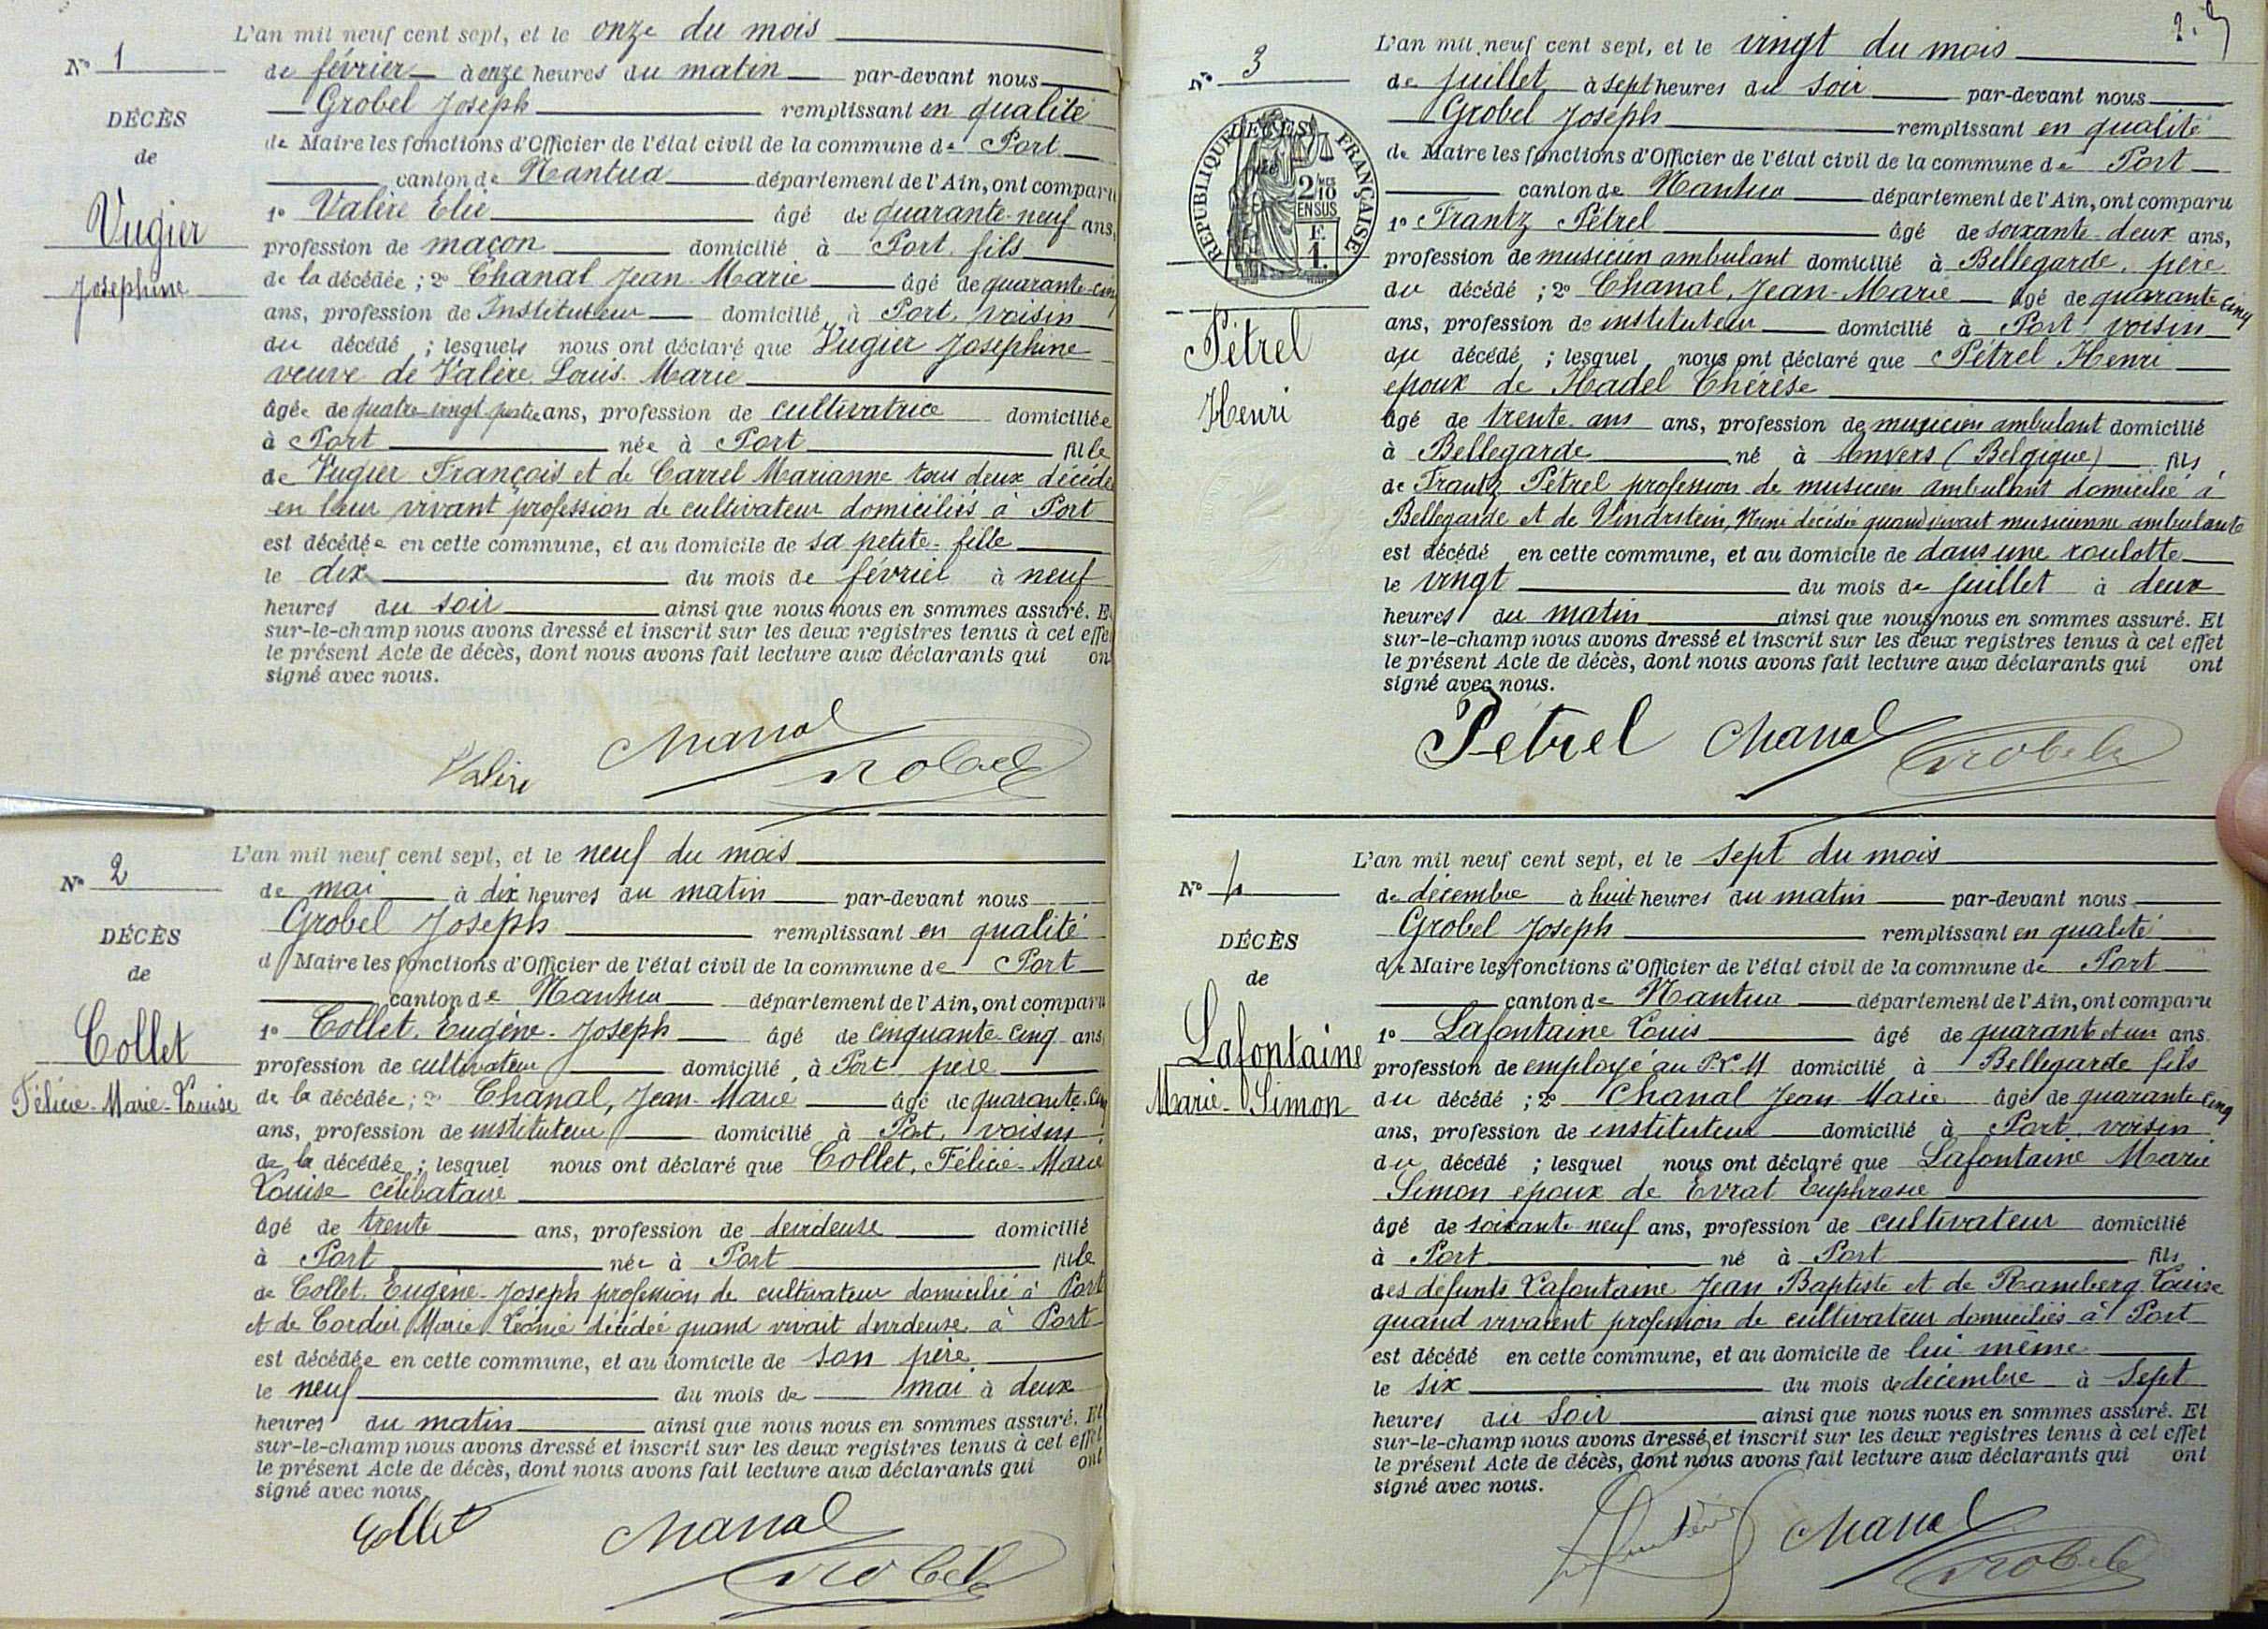 L'an mil neuf cent sept, et le onze du mois
Nº 1
de février à onze heures du matin par-devant nous
Grobel Joseph remplissant en qualité
DÉCÈS
de Maire les fonctions d'Officier de l'état civil de la commune de Port
de
canton de Nantua département de l'Ain, ont comparu
1º Valère Elie âgé de quarante-neuf ans,
Vugier
profession de maçon domicilié à Port, fils
Joséphine
de la décédée ; 2º Chanal Jean-Marie âgé de quarante-cinq
ans, profession de Instituteur domicilié à Port, voisin
du décédé ; lesquels nous ont déclaré que Vugier Joséphine
veuve de Valère Louis-Marie
âgée de quatre-vingt-quatre ans, profession de cultivatrice domiciliée
à Port née à Port fille
de Vugier François et de Carrel Marianne tous deux décédés
en leur vivant profession de cultivateur domiciliés à Port
est décédée en cette commune, et au domicile de sa petite-fille
le dix du mois de février à neuf
heures du soir ainsi que nous nous en sommes assuré. Et
sur-le-champ nous avons dressé et inscrit sur les deux registres tenus à cet effet
le présent Acte de décès, dont nous avons fait lecture aux déclarants qui ont
signé avec nous.
Valère Chanal Grobel
L'an mil neuf cent sept, et le neuf du mois
Nº 2
de mai à dix heures du matin par-devant nous
Grobel Joseph remplissant en qualité
DÉCÈS
d Maire les fonctions d'Officier de l'état civil de la commune de Port
de
canton de Nantua département de l'Ain, ont comparu
1º Collet, Eugène-Joseph âgé de cinquante-cinq ans,
Collet
profession de cultivateur domicilié à Port père
Félicie-Marie-Louise
de la décédée ; 2º Chanal, Jean-Marie âgé de quarante-cinq
ans, profession de instituteur domicilié à Port, voisin
de la décédée ; lesquel nous ont déclaré que Collet, Félicie-Marie
Louise célibataire
âgé de trente ans, profession de dévideuse domicilié
à Port née à Port fille
de Collet, Eugène-Joseph profession de cultivateur domicilié à Port
et de Cordier Marie Léonie décédée quand vivait dévideuse à Port
est décédée en cette commune, et au domicile de son père
le neuf du mois de mai à deux
heures du matin ainsi que nous nous en sommes assuré. Et
sur-le-champ nous avons dressé et inscrit sur les deux registres tenus à cet effet
le présent Acte de décès, dont nous avons fait lecture aux déclarants qui ont
signé avec nous.
Collet Chanal Grobel
L'an mil neuf cent sept, et le vingt du mois
Nº 3
de juillet à sept heures du soir par-devant nous
Grobel Joseph remplissant en qualité
DÉCÈS
de Maire les fonctions d'Officier de l'état civil de la commune de Port
RÉPUBLIQUE FRANÇAISE
2/10 MES
EN SUS
E.
1.
canton de Nantua département de l'Ain, ont comparu
1º Frantz Pétrel âgé de soixante-deux ans,
profession de musicien ambulant domicilié à Bellegarde, père
du décédé ; 2º Chanal, Jean-Marie âgé de quarante cinq
ans, profession de instituteur domicilié à Port voisin
Pétrel
du décédé ; lesquel nous ont déclaré que Pétrel Henri
époux de Hadel Thérèse
Henri
âgé de trente ans ans, profession de musicien ambulant domicilié
à Bellegarde né à Anvers (Belgique) fils
de Frantz Pétrel profession de musicien ambulant domicilié à
Bellegarde et de décédée quand vivait musicienne ambulante
est décédé en cette commune, et au domicile de dans une roulotte
le vingt du mois de juillet à deux
heures du matin ainsi que nous nous en sommes assuré. Et
sur-le-champ nous avons dressé et inscrit sur les deux registres tenus à cet effet
le présent Acte de décès, dont nous avons fait lecture aux déclarants qui ont
signé avec nous.
Pétrel Chanal Grobel
L'an mil neuf cent sept, et le sept du mois
Nº 4
de décembre à huit heures du matin par-devant nous
Grobel Joseph remplissant en qualité
DÉCÈS
de Maire les fonctions d'Officier de l'état civil de la commune de Port
de
canton de Nantua département de l'Ain, ont comparu
1º Lafontaine Louis âgé de quarante et un ans
Lafontaine
profession de employé au P.L.M domicilié à Bellegarde fils
Marie-Simon
du décédé ; 2º Chanal Jean-Marie âgé de quarante cinq
ans, profession de instituteur domicilié à Port, voisin
du décédé ; lesquel nous ont déclaré que Lafontaine Marie
Simon époux de Evrat Euphrasie
âgé de soixante-neuf ans, profession de cultivateur domicilié
à Port né à Port fils
des défunts Lafontaine Jean Baptiste et de Ramberg Louise
quand vivaient profession de cultivateur domiciliés à Port
est décédé en cette commune, et au domicile de lui même
le six du mois de décembre à sept
heures du soir ainsi que nous nous en sommes assuré. Et
sur-le-champ nous avons dressé et inscrit sur les deux registres tenus à cet effet
le présent Acte de décès, dont nous avons fait lecture aux déclarants qui ont
signé avec nous.
Chanal Grobel